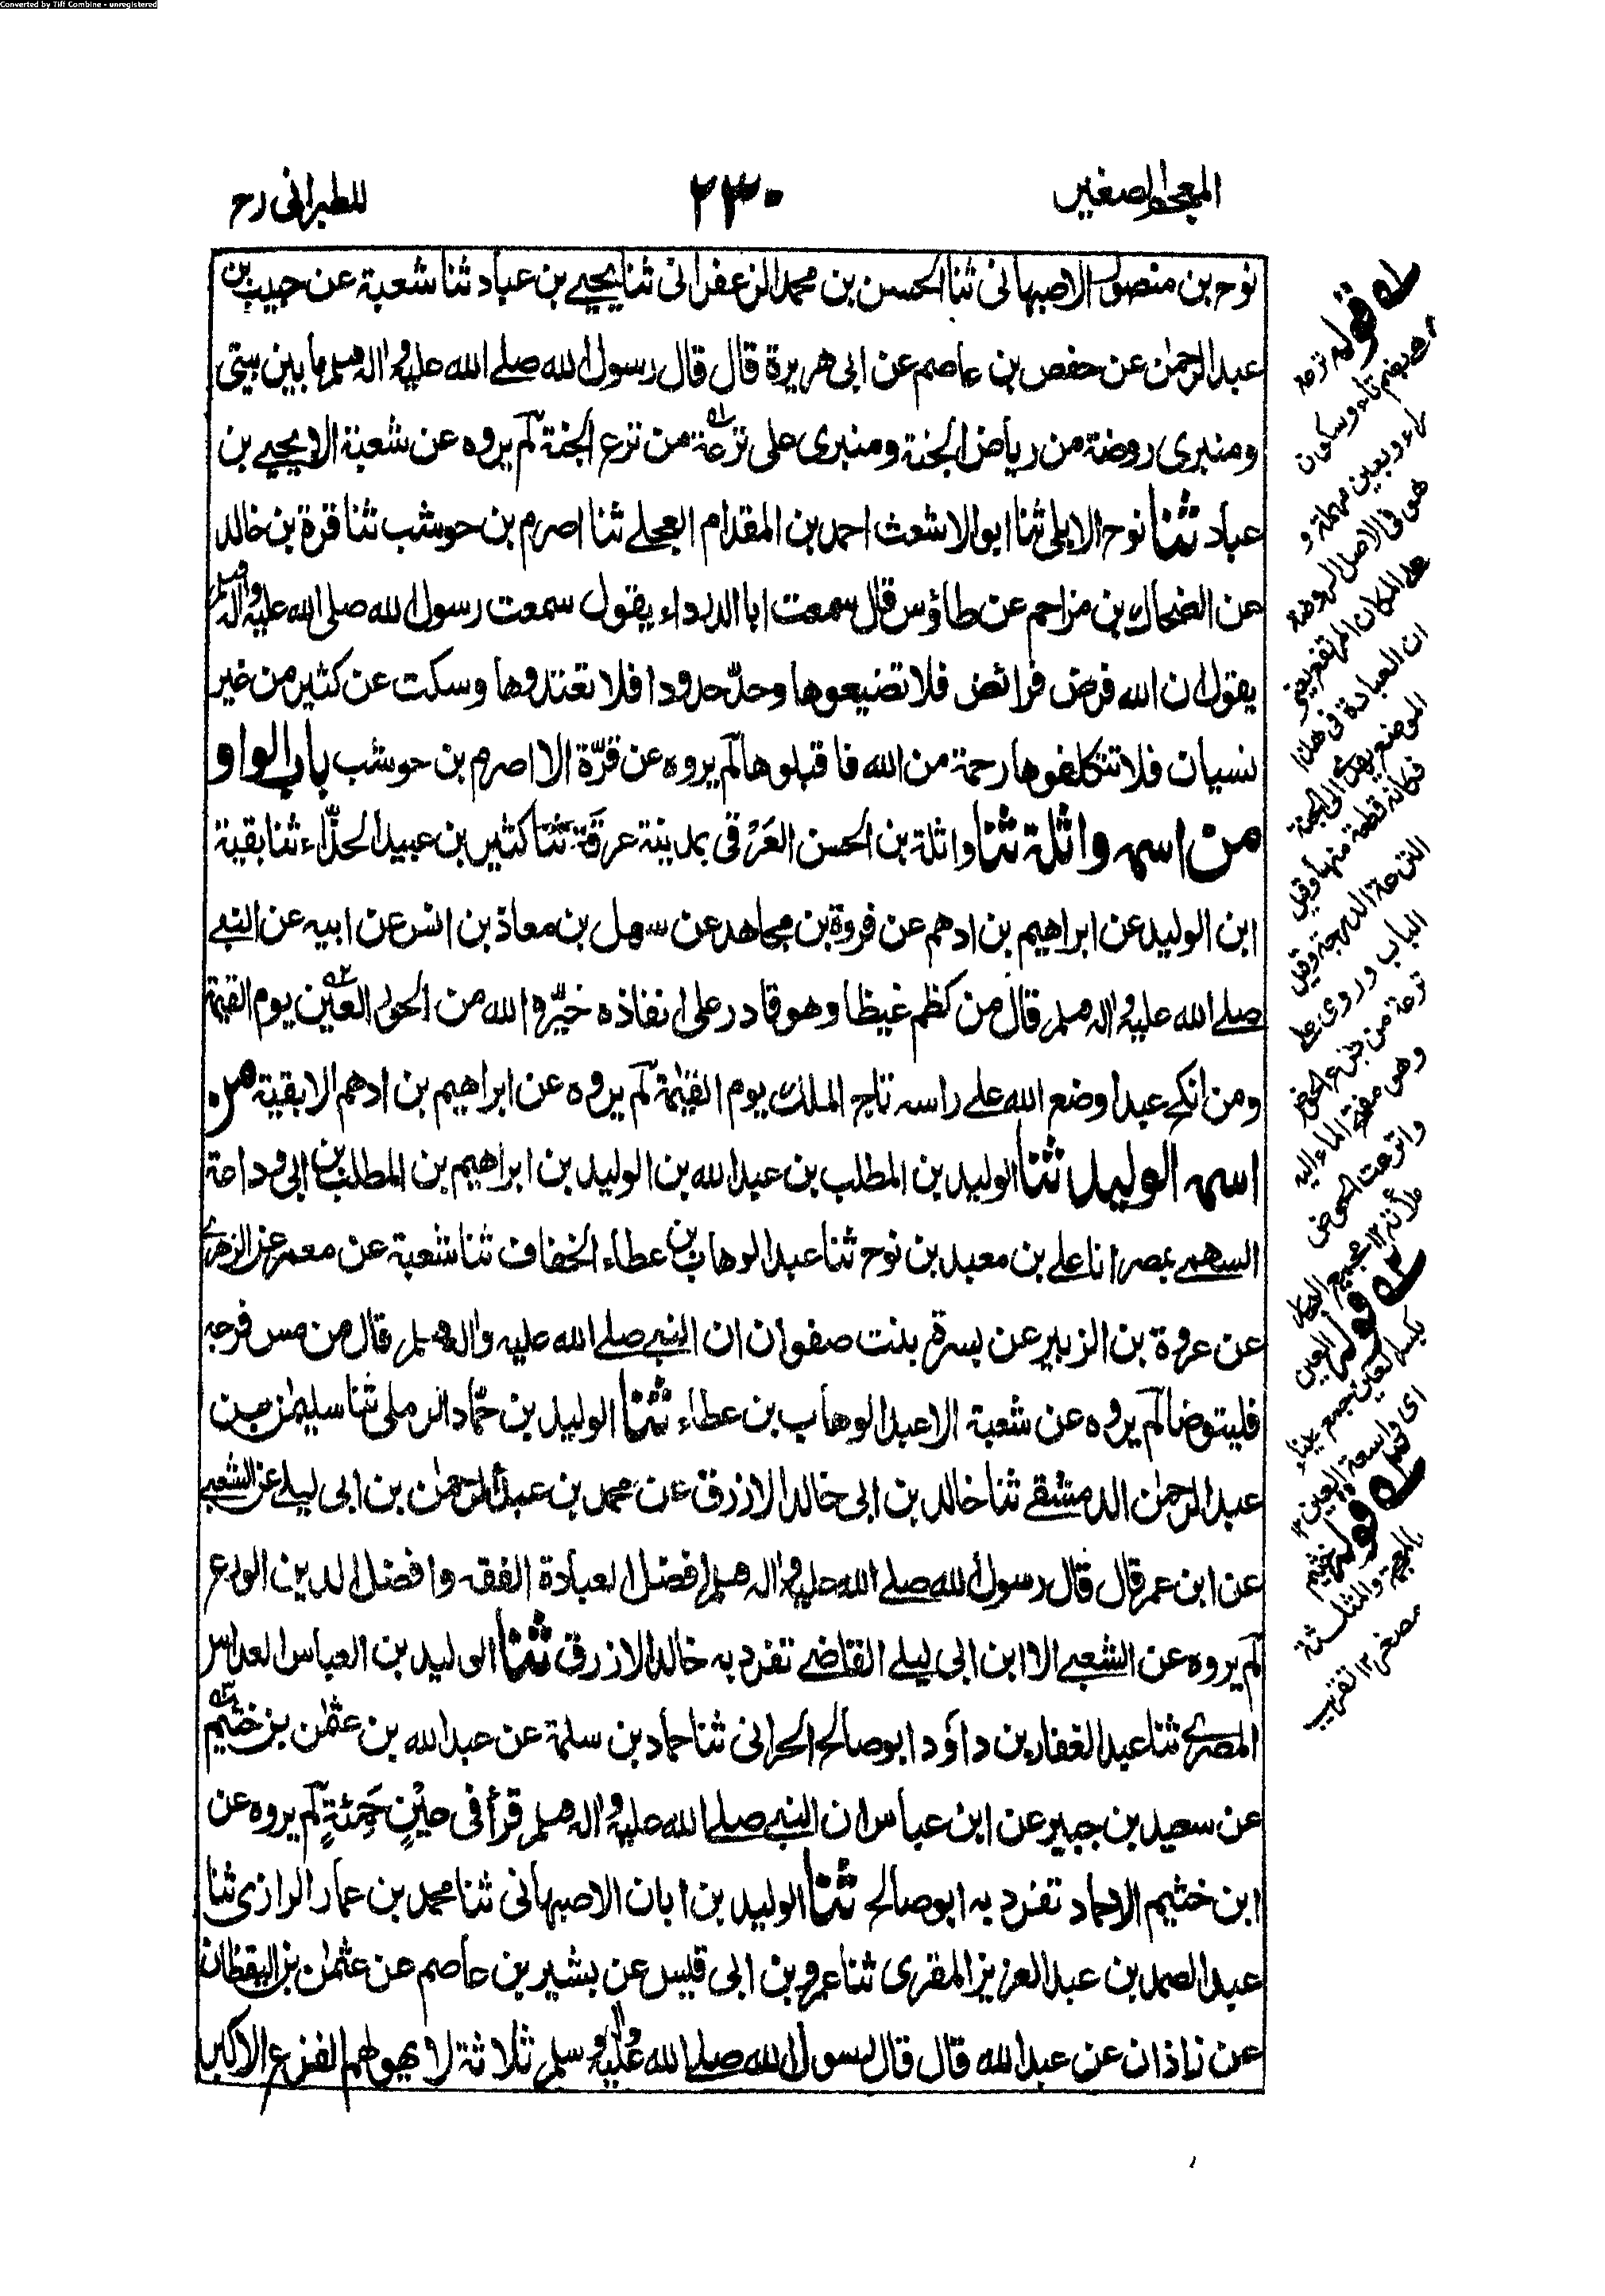 Converted by Tiff Combine - unregistered
المعجم الصغير
٢٣٠
للطبرانی رح
نوح بن منصور الاصبهانی ثنا الحسن بن محمد الزعفرانی ثنا یحیے بن عباد ثنا شعبة عن حبیب بن
عبد الرحمٰن عن حفص بن عاصم عن ابی هریرة قال قال رسول الله صلے الله علیه واله وسلم ما بین بیتی
ومنبری روضة من ریاض الجنة ومنبری علی ترعة من ترع الجنة لم یروه عن شعبة الا یحیے بن
عباد ثنا نوح الابلی ثنا ابو الاشعث احمد بن المقدام العجلے ثنا اصرم بن حوشب ثنا قرة بن خالد
عن الضحاك بن مزاحم عن طاؤس قال سمعت ابا الدرداء یقول سمعت رسول الله صلی الله علیه واله وسلم
یقول ان الله فرض فرائض فلا تضیعوها وحدّ حدودا فلا تعتدوها وسکت عن کثیر من غیر
نسیان فلا تتکلفوها رحمة من الله فاقبلوها لم یروه عن قرّة الا اصرم بن حوشب باب الواو
من اسمه واثلة ثنا واثلة بن الحسن العَرْقی بمدینة عرقة ثنا کثیر بن عبید الحذّاء ثنا بقیة
ابن الولید عن ابراهیم بن ادهم عن فروة بن مجاهد عن سهل بن معاذ بن انس عن ابیه عن النبے
صلے الله علیه واله وسلم قال من کظم غیظا وهو قادر علی انفاذه خیّره الله من الحور العین یوم القیمة
ومن انکح عبدا وضع الله علے راسه تاج الملك یوم القیٰمة لم یروه عن ابراهیم بن ادهم الا بقیة من
اسمه الولید ثنا الولید بن المطلب بن عبد الله بن الولید بن ابراهیم بن المطلب بن ابی وداعة
السهمے بمصر انا علے بن معبد بن نوح ثنا عبد الوهاب بن عطاء الخفاف ثنا شعبة عن معمر عن الزهرے
عن عروة بن الزبیر عن بسرة بنت صفوان ان النبے صلے الله علیه واله وسلم قال من مس فرجه
فلیتوضا لم یروه عن شعبة الا عبد الوهاب بن عطاء ثنا الولید بن حمّاد الرملی ثنا سلیمٰن بن
عبد الرحمٰن الدمشقے ثنا خالد بن ابی خالد الازرق عن محمد بن عبد الرحمٰن بن ابی لیلے عن الشعبے
عن ابن عمر قال قال رسول الله صلے الله علیه واله وسلم افضل العبادة الفقه وافضل الدین الورع
لم یروه عن الشعبے الا ابن ابی لیلے القاضے تفرد به خالد الازرق ثنا الولید بن العباس العداس
المصرے ثنا عبد الغفار بن داؤد ابو صالح الحرانی ثنا حماد بن سلمة عن عبد الله بن عثمٰن بن خثیم
عن سعید بن جبیر عن ابن عباس ان النبے صلے الله علیه واله وسلم قرأ فی عَیْنٍ حَمِئَةٍ لم یروه عن
ابن خثیم الا حماد تفرد به ابو صالح ثنا الولید بن ابان الاصبهانی ثنا محمد بن عمار الرازی ثنا
عبد الصمد بن عبد العزیز المقری ثنا عمرو بن ابی قیس عن بشیر بن عاصم عن عثمٰن بن الیقظان
عن زاذان عن عبد الله قال قال رسول الله صلے الله علیه واله وسلم ثلاثة لا یهولهم الفزع الاکبر
قوله ترعة
بضم تاء وسکون
راء وبعین مهملة و
هی فی الاصل الروضة
علے المکان المرتفع یعنی
ان العبادة فی هذا
الموضع یؤدی الی الجنة
فکانه قطعة منها وقیل
الترعة الدرجة وقیل
الباب وروی علے
ترعة من ترع الحوض
وهی مفتح الماء الیه
واترعت الحوض
ملأته ١٢ مجمع البحار
قوله العین
بکسر العین جمع عیناء
ای واسعة العین ١٢
قوله خثیم
بالمعجمة والمثلثة
مصغر ١٢ تقریب